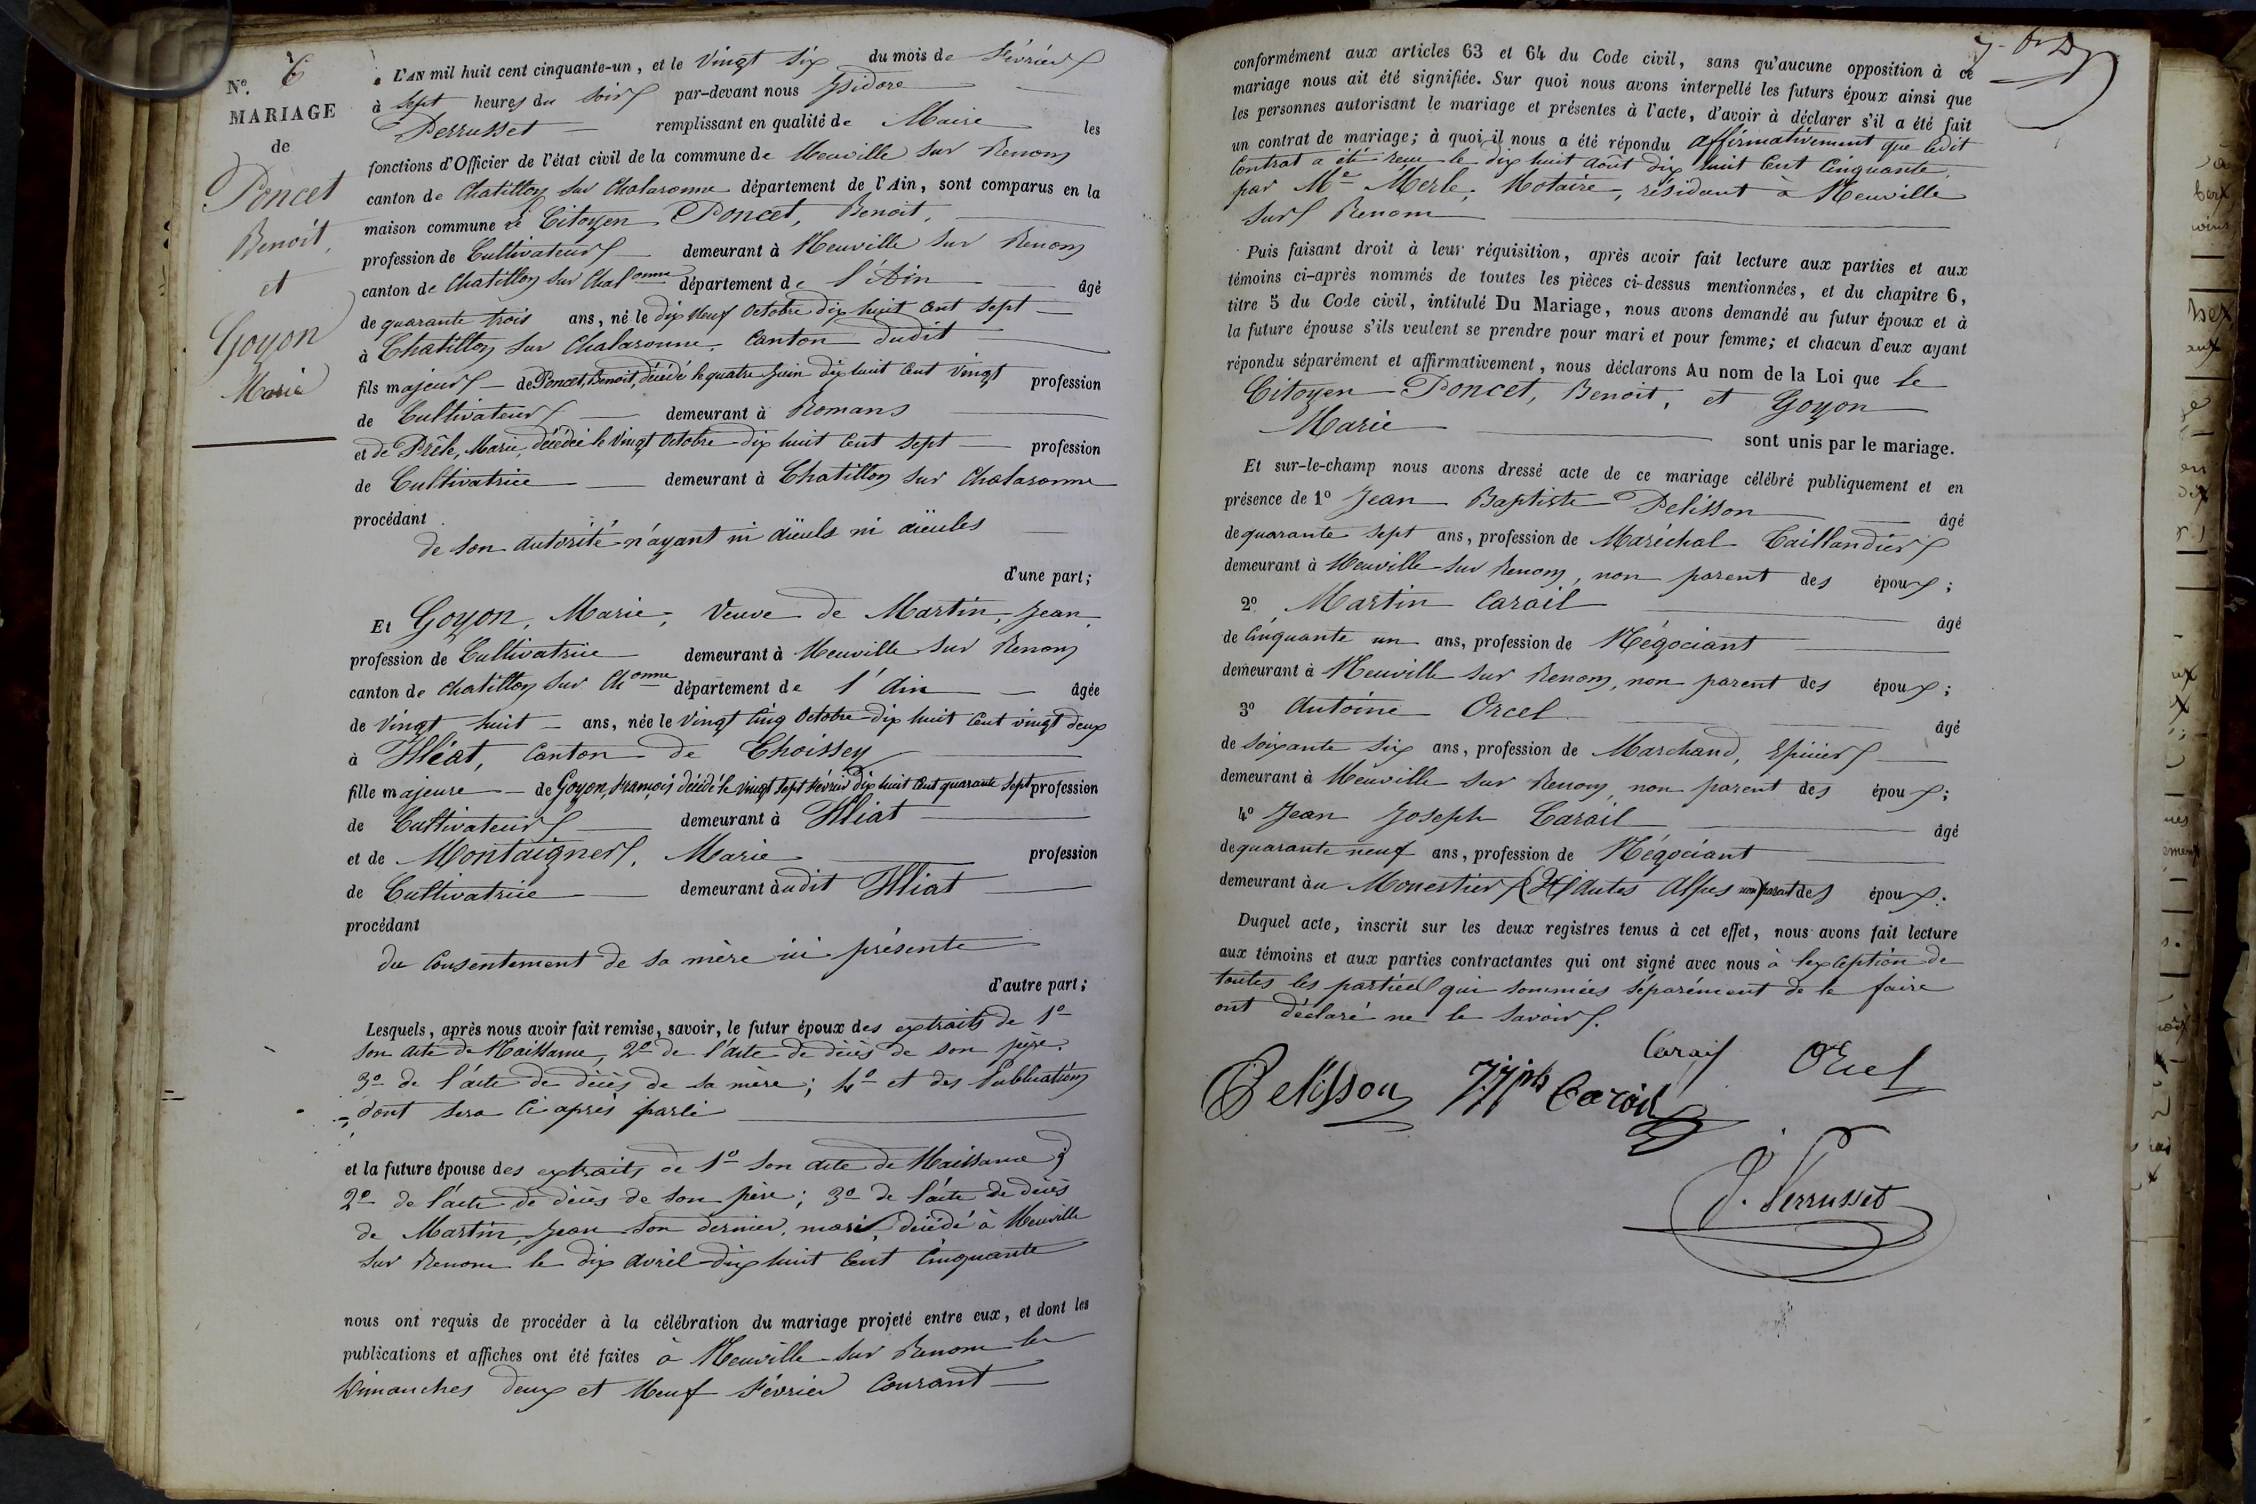 N°. 6
MARIAGE
de
Poncet
Benoit,
et
Goyon
Marie
L'AN mil huit cent cinquante-un, et le Vingt Six du mois de Février
à Sept heures du Soir par-devant nous Isidore
Perrusset remplissant en qualité de Maire les
fonctions d'Officier de l'état civil de la commune de Neuville sur Renom
canton de Chatillon sur Chalaronne département de l'Ain, sont comparus en la
maison commune le Citoyen Poncet, Benoit,
profession de Cultivateur demeurant à Neuville sur Renom
canton de Chatillon sur Chalonne département de l'Ain âgé
de quarante trois ans, né le dix Neuf Octobre dix huit Cent Sept
à Chatillon sur Chalaronne, Canton dudit
fils majeur de Poncet, Benoit, décédé le quatre Juin dix huit Cent Vingt profession
de Cultivateur demeurant à Romans
et de Prêle, Marie, décédée le Vingt Octobre dix huit Cent Sept profession
de Cultivatrice demeurant à Chatillon sur Chalaronne
procédant
de son autorité n'ayant ni aïeuls ni aïeules
d'une part;
Et Goyon, Marie, Veuve de Martin, Jean,
profession de Cultivatrice demeurant à Neuville sur Renom
canton de Chatillon sur Chonne département de l'Ain âgée
de Vingt huit ans, née le Vingt Cinq Octobre dix huit Cent vingt deux
à Illéat, Canton de Thoissey
fille majeure de Goyon, François décédé le Vingt Sept Février dix huit Cent quarante Sept profession
de Cultivateur demeurant à Illiat
et de Montaigner, Marie profession
de Cultivatrice demeurant àudit Illiat
procédant
du Consentement de sa mère ici présente
d'autre part;
Lesquels, après nous avoir fait remise, savoir, le futur époux des extraits de 1°
son acte de Naissance, 2° de l'acte de décès de son père.
3° de l'acte de décès de sa mère; 4° et des Publications
dont sera Ci après parlé
et la future épouse des extraits de 1° son acte de Naissance;
2° de l'acte de décès de son père; 3° de l'acte de décès
de Martin, Jean son dernier mari, décédé à Neuville
sur Renom le dix avril dix huit Cent Cinquante
nous ont requis de procéder à la célébration du mariage projeté entre eux, et dont les
publications et affiches ont été faites à Neuville sur Renom les
Dimanches deux et Neuf Février Courant
conformément aux articles 63 et 64 du Code civil, sans qu'aucune opposition à ce
mariage nous ait été signifiée. Sur quoi nous avons interpellé les futurs époux ainsi que
les personnes autorisant le mariage et présentes à l'acte, d'avoir à déclarer s'il a été fait
un contrat de mariage; à quoi il nous a été répondu Affirmativement que ledit
Contrat a été reçu le dix huit août dix huit Cent Cinquante,
par Me Merle, Notaire, résidant à Neuville
sur Renom
Puis faisant droit à leur réquisition, après avoir fait lecture aux parties et aux
témoins ci-après nommés de toutes les pièces ci-dessus mentionnées, et du chapitre 6,
titre 5 du Code civil, intitulé Du Mariage, nous avons demandé au futur époux et à
la future épouse s'ils veulent se prendre pour mari et pour femme; et chacun d'eux ayant
répondu séparément et affirmativement, nous déclarons Au nom de la Loi que le
Citoyen Poncet, Benoit, et Goyon
Marie
sont unis par le mariage.
Et sur-le-champ nous avons dressé acte de ce mariage célébré publiquement et en
présence de 1° Jean Baptiste Pelisson âgé
de quarante sept ans, profession de Maréchal Taillandier
demeurant à Neuville sur Renom, non parent des époux;
2° Martin Carail âgé
de Cinquante un ans, profession de Négociant
demeurant à Neuville sur Renom, non parent des époux;
3° Antoine Orcel âgé
de soixante six ans, profession de Marchand, Epicier
demeurant à Neuville sur Renom, non parent des époux;
4° Jean Joseph Carail âgé
de quarante neuf ans, profession de Négociant
demeurant àu Monestier (Hautes Alpes non parent des époux.
Duquel acte, inscrit sur les deux registres tenus à cet effet, nous avons fait lecture
aux témoins et aux parties contractantes qui ont signé avec nous à l'exception de
toutes les parties qui sommées séparément de le faire
ont déclaré ne le savoir.
Carail Orcel
Pelisson Carail
J. Perrusset